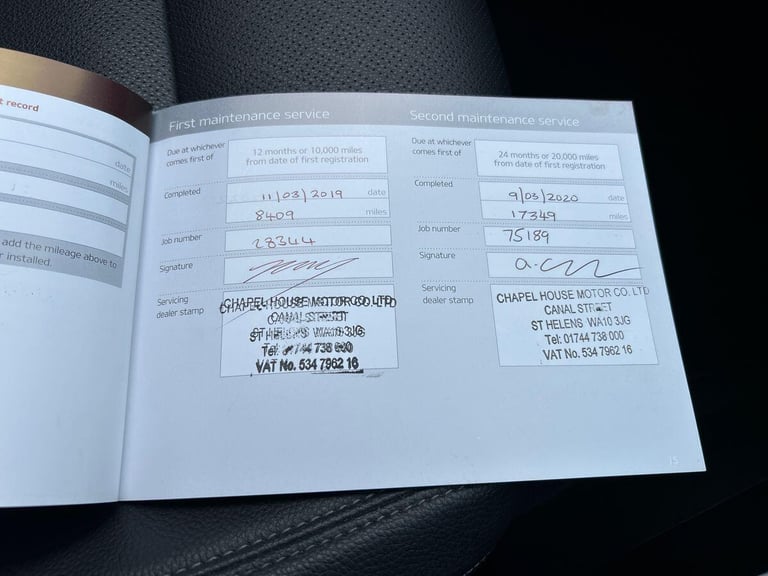 t record
date
miles
add the mileage above to
r installed.
First maintenance service
Due at whichever
comes first of
12 months or 10,000 miles
from date of first registration
Completed
11/03/2019 date
8409 miles
Job number
28344
Signature
Servicing
dealer stamp
CHAPEL HOUSE MOTOR CO LTD
CANAL STREET
ST HELENS WA10 3JG
Tel: 01744 738 000
VAT No. 534 7962 16
Second maintenance service
Due at whichever
comes first of
24 months or 20,000 miles
from date of first registration
Completed
9/03/2020 date
17349 miles
Job number
75189
Signature
Servicing
dealer stamp
CHAPEL HOUSE MOTOR CO. LTD
CANAL STREET
ST HELENS WA10 3JG
Tel: 01744 738 000
VAT No. 534 7962 16
15